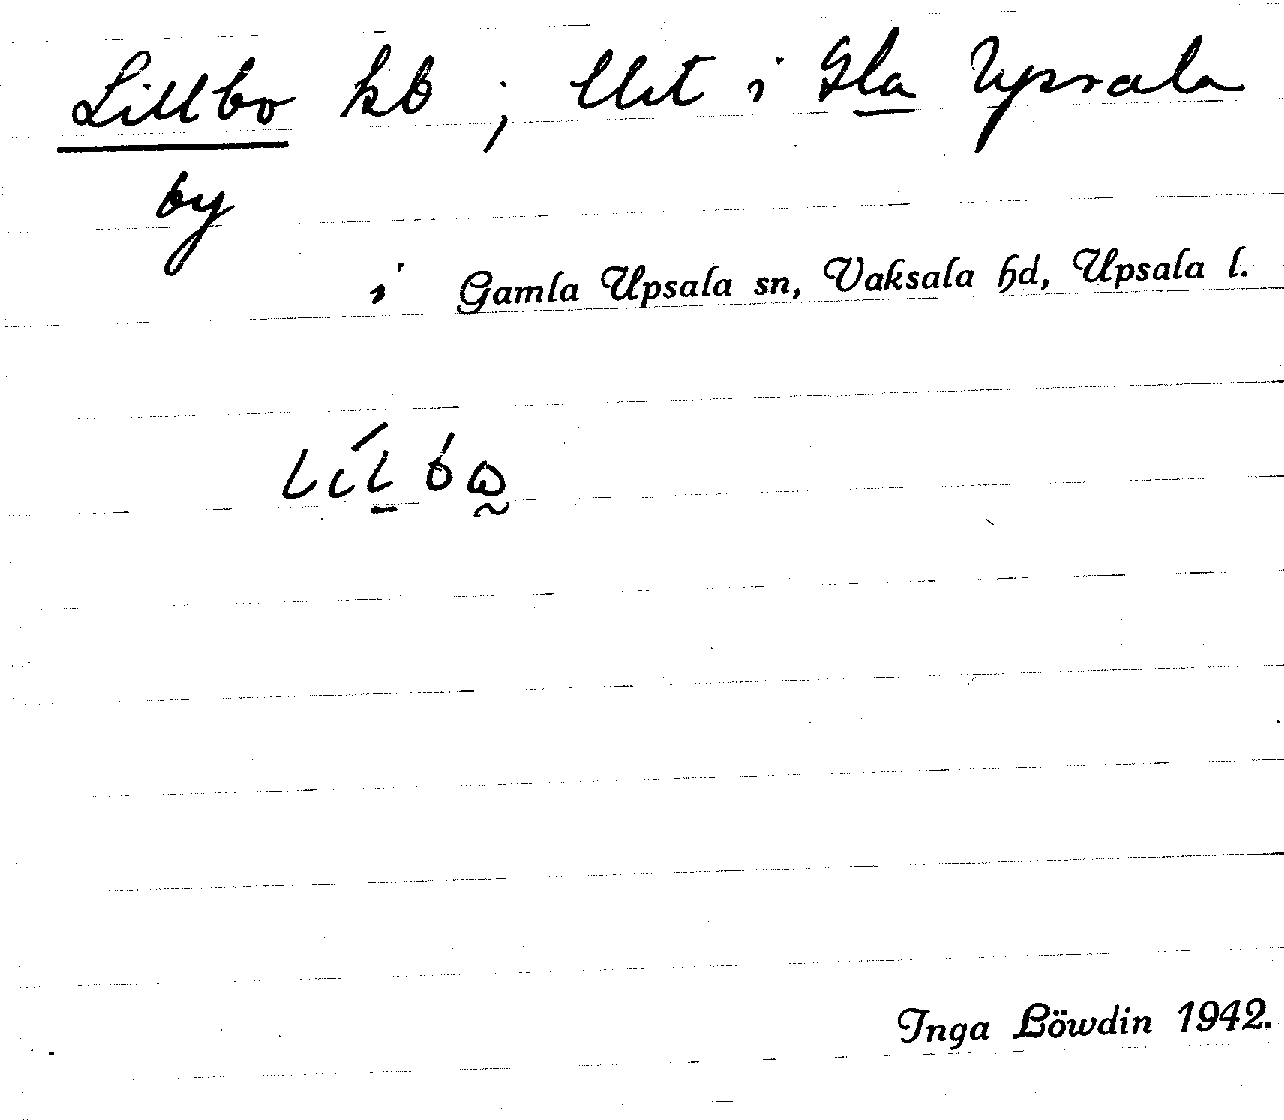 Lillbo hb; llet i Gla Upsala
by
i Gamla Upsala sn, Vaksala hd, Upsala l.
Inga Löwdin 1942.